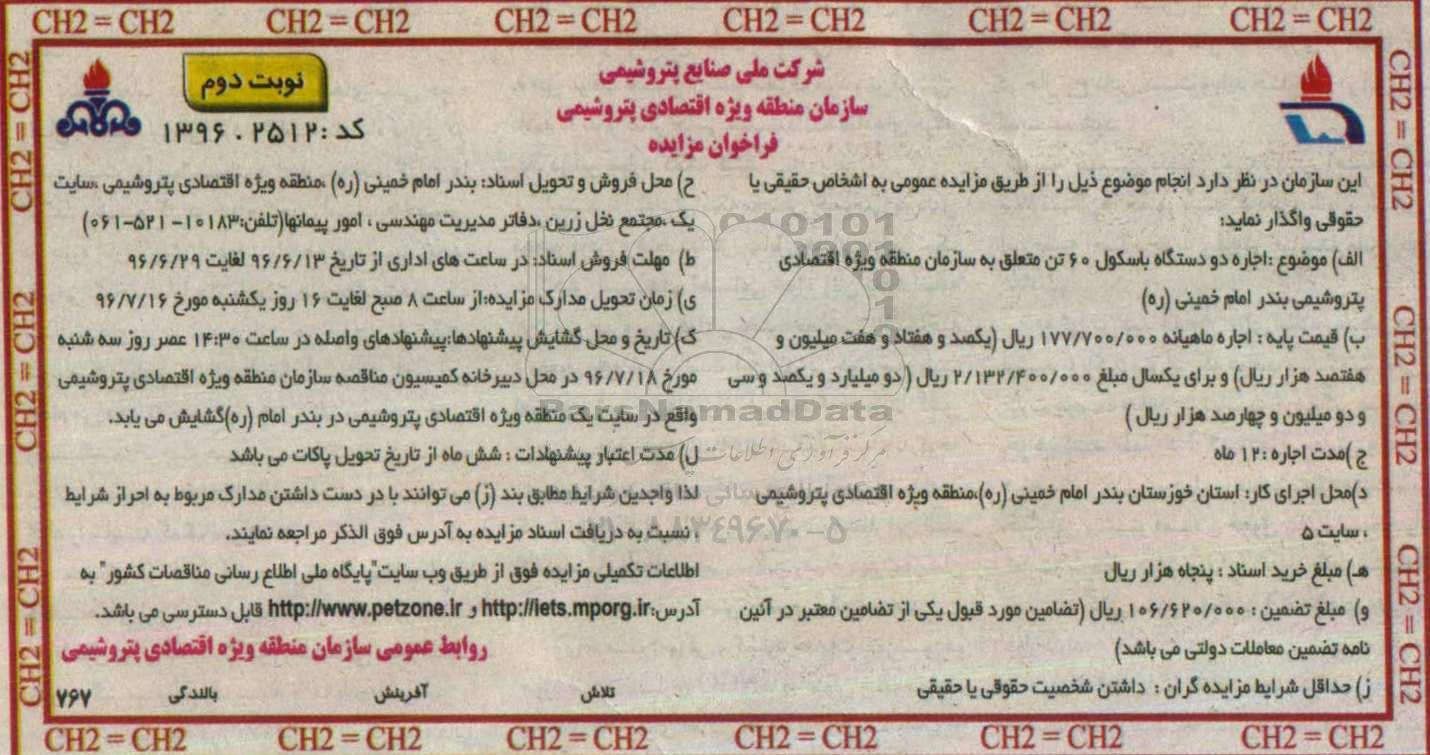 CH2 = CH2 CH2 = CH2 CH2 = CH2 CH2 = CH2 CH2 = CH2 CH2 = CH2
CH2 = CH2
CH2 = CH2
CH2 = CH2
CH2 = CH2
CH2 = CH2
CH2 = CH2
شرکت ملی صنایع پتروشیمی
سازمان منطقه ویژه اقتصادی پتروشیمی
فراخوان مزایده
نوبت دوم
کد :۲۵۱۲ . ۱۳۹۶
این سازمان در نظر دارد انجام موضوع ذیل را از طریق مزایده عمومی به اشخاص حقیقی یا
حقوقی واگذار نماید:
الف) موضوع :اجاره دو دستگاه باسکول ۶۰ تن متعلق به سازمان منطقه ویژه اقتصادی
پتروشیمی بندر امام خمینی (ره)
ب) قیمت پایه : اجاره ماهیانه ۱۷۷/۷۰۰/۰۰۰ ریال (یکصد و هفتاد و هفت میلیون و
هفتصد هزار ریال) و برای یکسال مبلغ ۲/۱۳۲/۴۰۰/۰۰۰ ریال ( دو میلیارد و یکصد و سی
و دو میلیون و چهارصد هزار ریال )
ج )مدت اجاره :۱۲ ماه
د)محل اجرای کار: استان خوزستان بندر امام خمینی (ره)،منطقه ویژه اقتصادی پتروشیمی
، سایت ۵
هـ) مبلغ خرید اسناد : پنجاه هزار ریال
و) مبلغ تضمین : ۱۰۶/۶۲۰/۰۰۰ ریال (تضامین مورد قبول یکی از تضامین معتبر در آئین
نامه تضمین معاملات دولتی می باشد)
ز) حداقل شرایط مزایده گران : داشتن شخصیت حقوقی یا حقیقی
ح) محل فروش و تحویل اسناد: بندر امام خمینی (ره) ،منطقه ویژه اقتصادی پتروشیمی ،سایت
یک ،مجتمع نخل زرین ،دفاتر مدیریت مهندسی ، امور پیمانها(تلفن:۱۰۱۸۳- ۵۲۱-۰۶۱)
ط) مهلت فروش اسناد: در ساعت های اداری از تاریخ ۹۶/۶/۱۳ لغایت ۹۶/۶/۲۹
ی) زمان تحویل مدارک مزایده:از ساعت ۸ صبح لغایت ۱۶ روز یکشنبه مورخ ۹۶/۷/۱۶
ک) تاریخ و محل گشایش پیشنهادها:پیشنهادهای واصله در ساعت ۱۴:۳۰ عصر روز سه شنبه
مورخ ۹۶/۷/۱۸ در محل دبیرخانه کمیسیون مناقصه سازمان منطقه ویژه اقتصادی پتروشیمی
واقع در سایت یک منطقه ویژه اقتصادی پتروشیمی در بندر امام (ره)گشایش می یابد.
ل) مدت اعتبار پیشنهادات : شش ماه از تاریخ تحویل پاکات می باشد
لذا واجدین شرایط مطابق بند (ز) می توانند با در دست داشتن مدارک مربوط به احراز شرایط
، نسبت به دریافت اسناد مزایده به آدرس فوق الذکر مراجعه نمایند.
اطلاعات تکمیلی مزایده فوق از طریق وب سایت"پایگاه ملی اطلاع رسانی مناقصات کشور" به
آدرس:http://iets.mporg.ir و http://www.petzone.ir قابل دسترسی می باشد.
روابط عمومی سازمان منطقه ویژه اقتصادی پتروشیمی
تلاش آفرینش بالندگی ۷۶۷
ParsNamadData
CH2 = CH2 CH2 = CH2 CH2 = CH2 CH2 = CH2 CH2 = CH2 CH2 = CH2